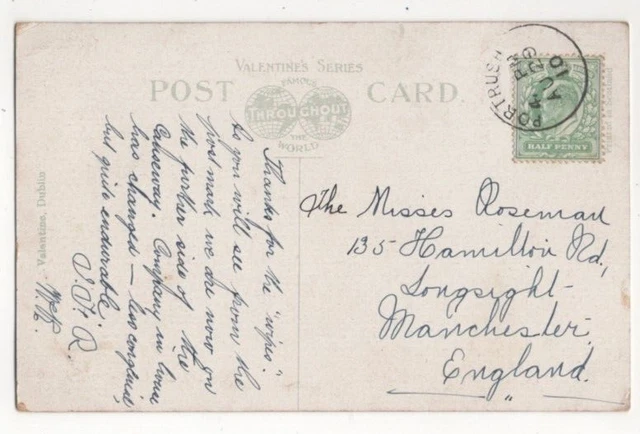 VALENTINE'S SERIES
FAMOUS
POST CARD
THROUGHOUT
THE
WORLD
PORTRUSH
HALF PENNY
Valentine, Dublin
Thanks for the "wipes."
As you will see from the
post mark we are now on
the further side of the
Causeway. Company in house
has changed — less congenial,
but quite endurable
J. R.
The Misses Roseman
135 Hamilton Rd,
Longsight
Manchester
England.